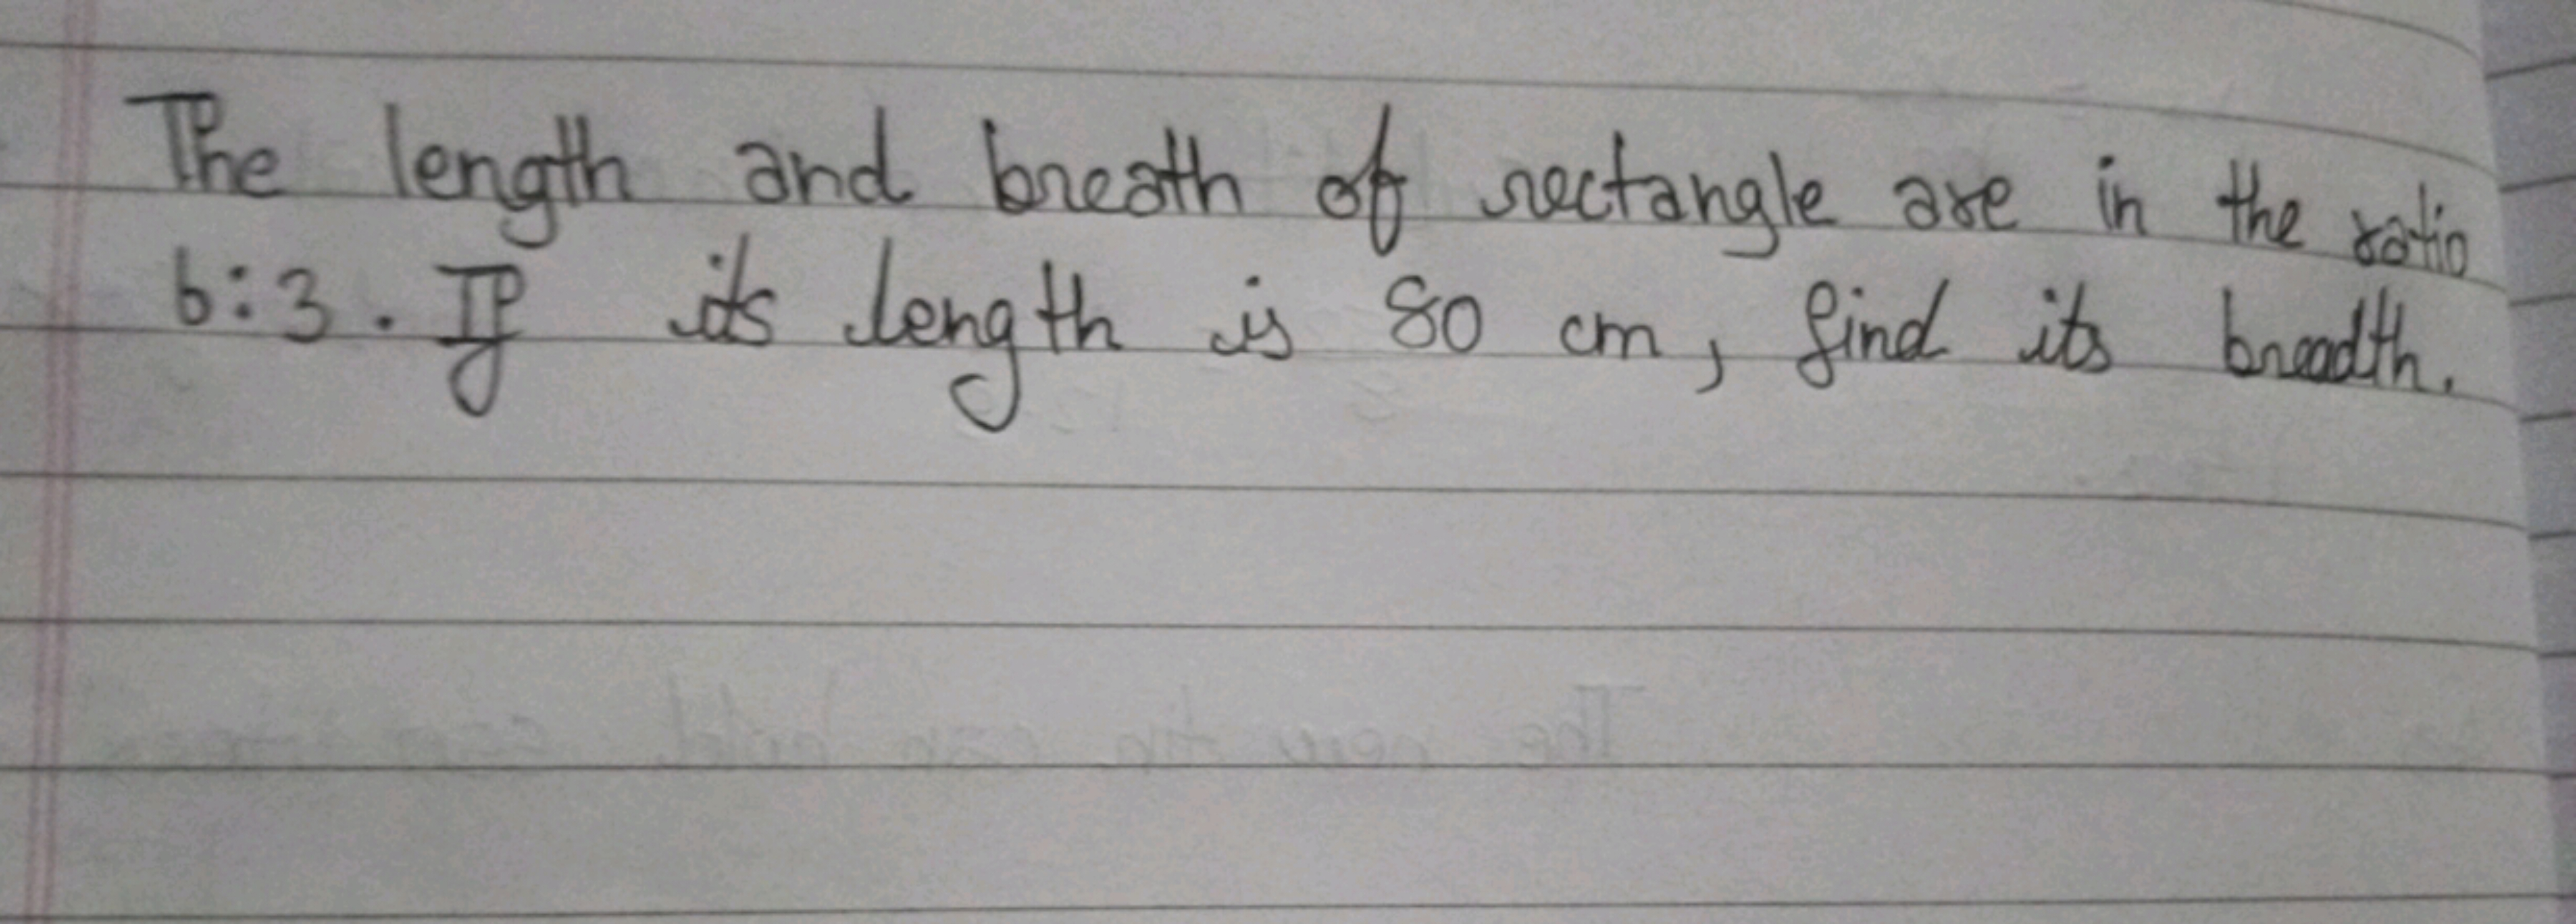 The length and breath of rectangle are in the ratio
6:3. If its length is 80 cm, find its breadth.
The new tin can hold